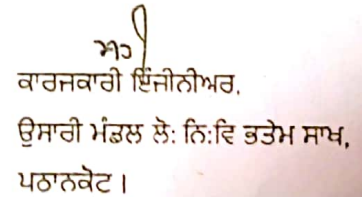 ਕਾਰਜਕਾਰੀ ਇੰਜੀਨੀਅਰ,
ਉਸਾਰੀ ਮੰਡਲ ਲੋ: ਨਿ:ਵਿ ਭਤੇਮ ਸਾਖ,
ਪਠਾਨਕੋਟ।